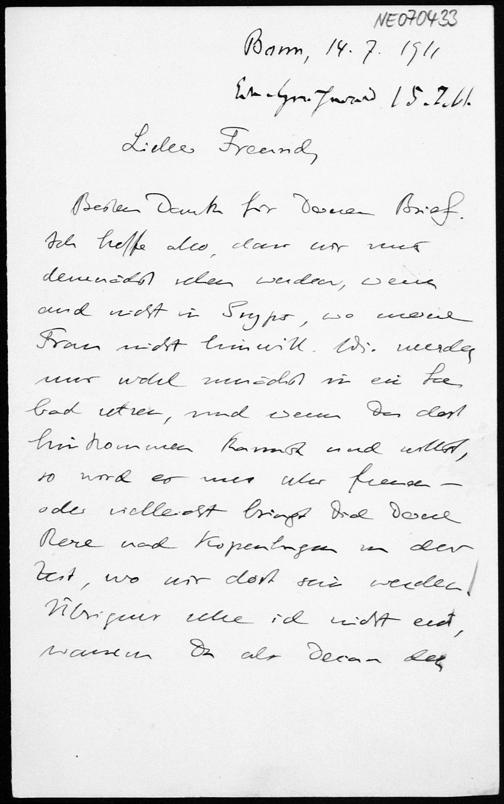 NE070433
Bonn, 14. 7. 1911
15.7.11.
Lieber Freund,
Besten Dank für Deinen Brief.
Ich hoffe also, dass wir uns
demnächst sehen werden, wenn
auch nicht in, wo meine
Frau nicht hinwill. Wir werden
uns wohl zunächst in ein See
bad setzen, und wenn Du dort
hinkommen kannst und willst,
so wird es uns sehr freuen –
oder vielleicht bringt Dich Deine
Reise nach Kopenhagen zu der
Zeit, wo wir dort sein werden!
Übrigens sehe ich nicht ein,
warum Du als Decan den